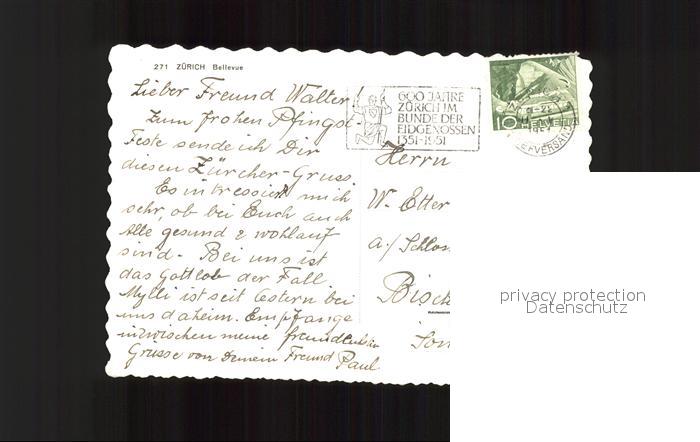 271 ZÜRICH Bellevue
Lieber Freund Walter!
Zum frohen Pfingst-
Feste sende ich Dir
diesen Zürcher-Gruss.
Es intressiert mich
sehr, ob bei Euch auch
Alle gesund & wohlauf
sind. Bei uns ist
das Gottlob der Fall
Mylli ist seit Ostern bei
uns daheim. Empfange
inzwischen meine freundlichen
Grüsse von Deinem Freund Paul
600 JAHRE
ZÜRICH IM
BUNDE DER
EIDGENOSSEN
1351-1951
10
BRIEFVERSAND
Herrn
W. Etter
a./ Schlos
Bisch
Son
privacy protection
Datenschutz